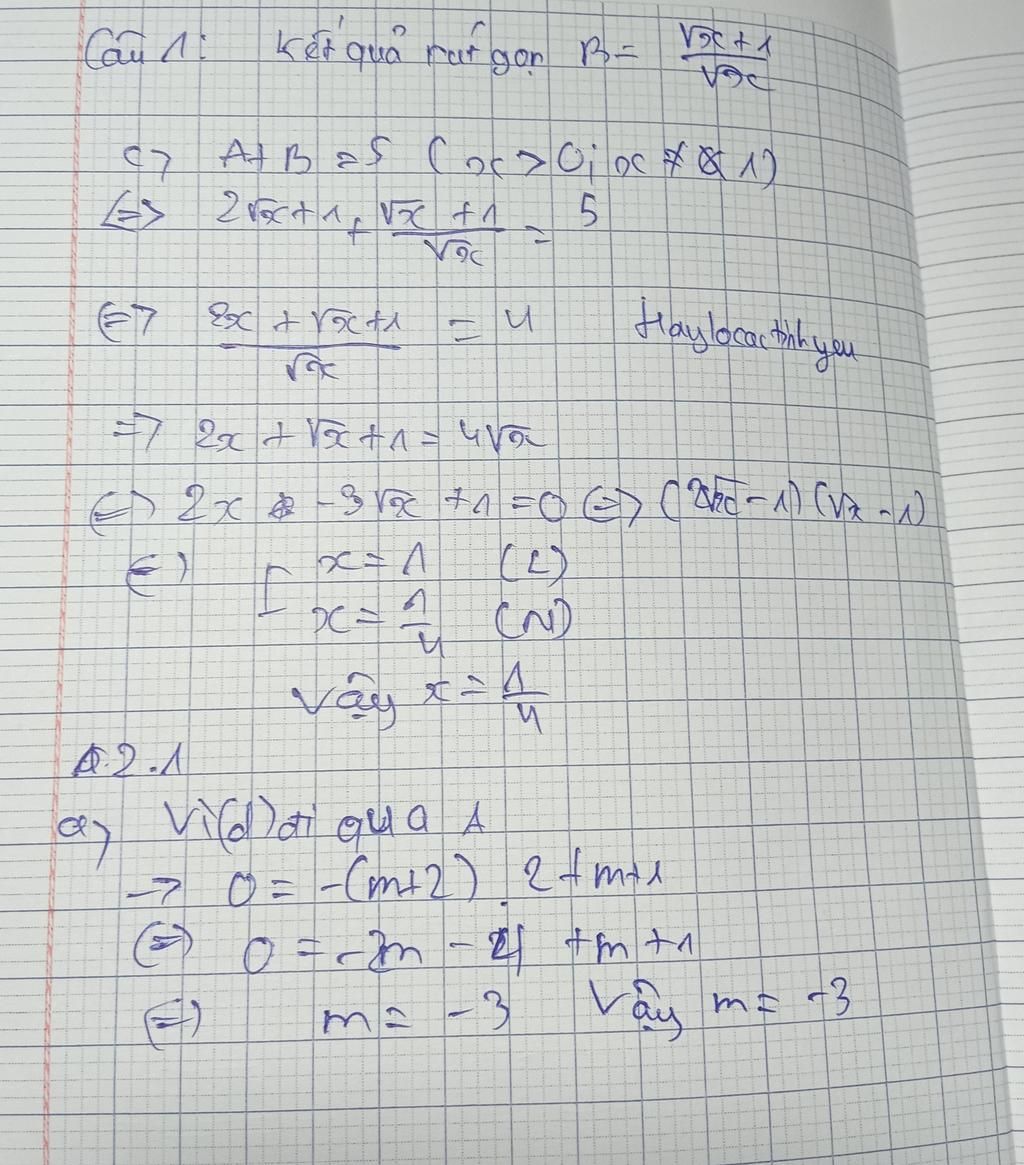 Câu 1: Kết quả rút gọn B = (√x + 1)/√x
c) A+B = 5 (x > 0; x ≠ 1)
<=> 2√x+1 + (√x + 1)/√x = 5
<=> (2x + √x+1)/√x = 4 Haylocactinhyeu
=> 2x + √x +1 = 4√x
<=> 2x -3√x +1 =0 <=> (2√x -1) (√x -1)
<=> [ x = 1 (L)
x = 1/4 (N)
Vậy x = 1/4
2.1
a) Vì (d) đi qua A
-> 0 = -(m+2) . 2 + m+1
<=> 0 = -2m - 4 + m + 1
<=> m = -3 Vậy m = -3